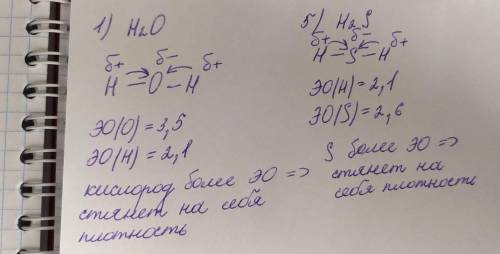 1) H₂O
δ+ δ− δ+
H – O – H
ЭО(О) = 3,5
ЭО(Н) = 2,1
кислород более ЭО =>
стянет на себя
плотность
5) H₂S
δ+ δ− δ+
H – S – H
ЭО(Н) = 2,1
ЭО(S) = 2,6
S более ЭО =>
стянет на
себя плотность